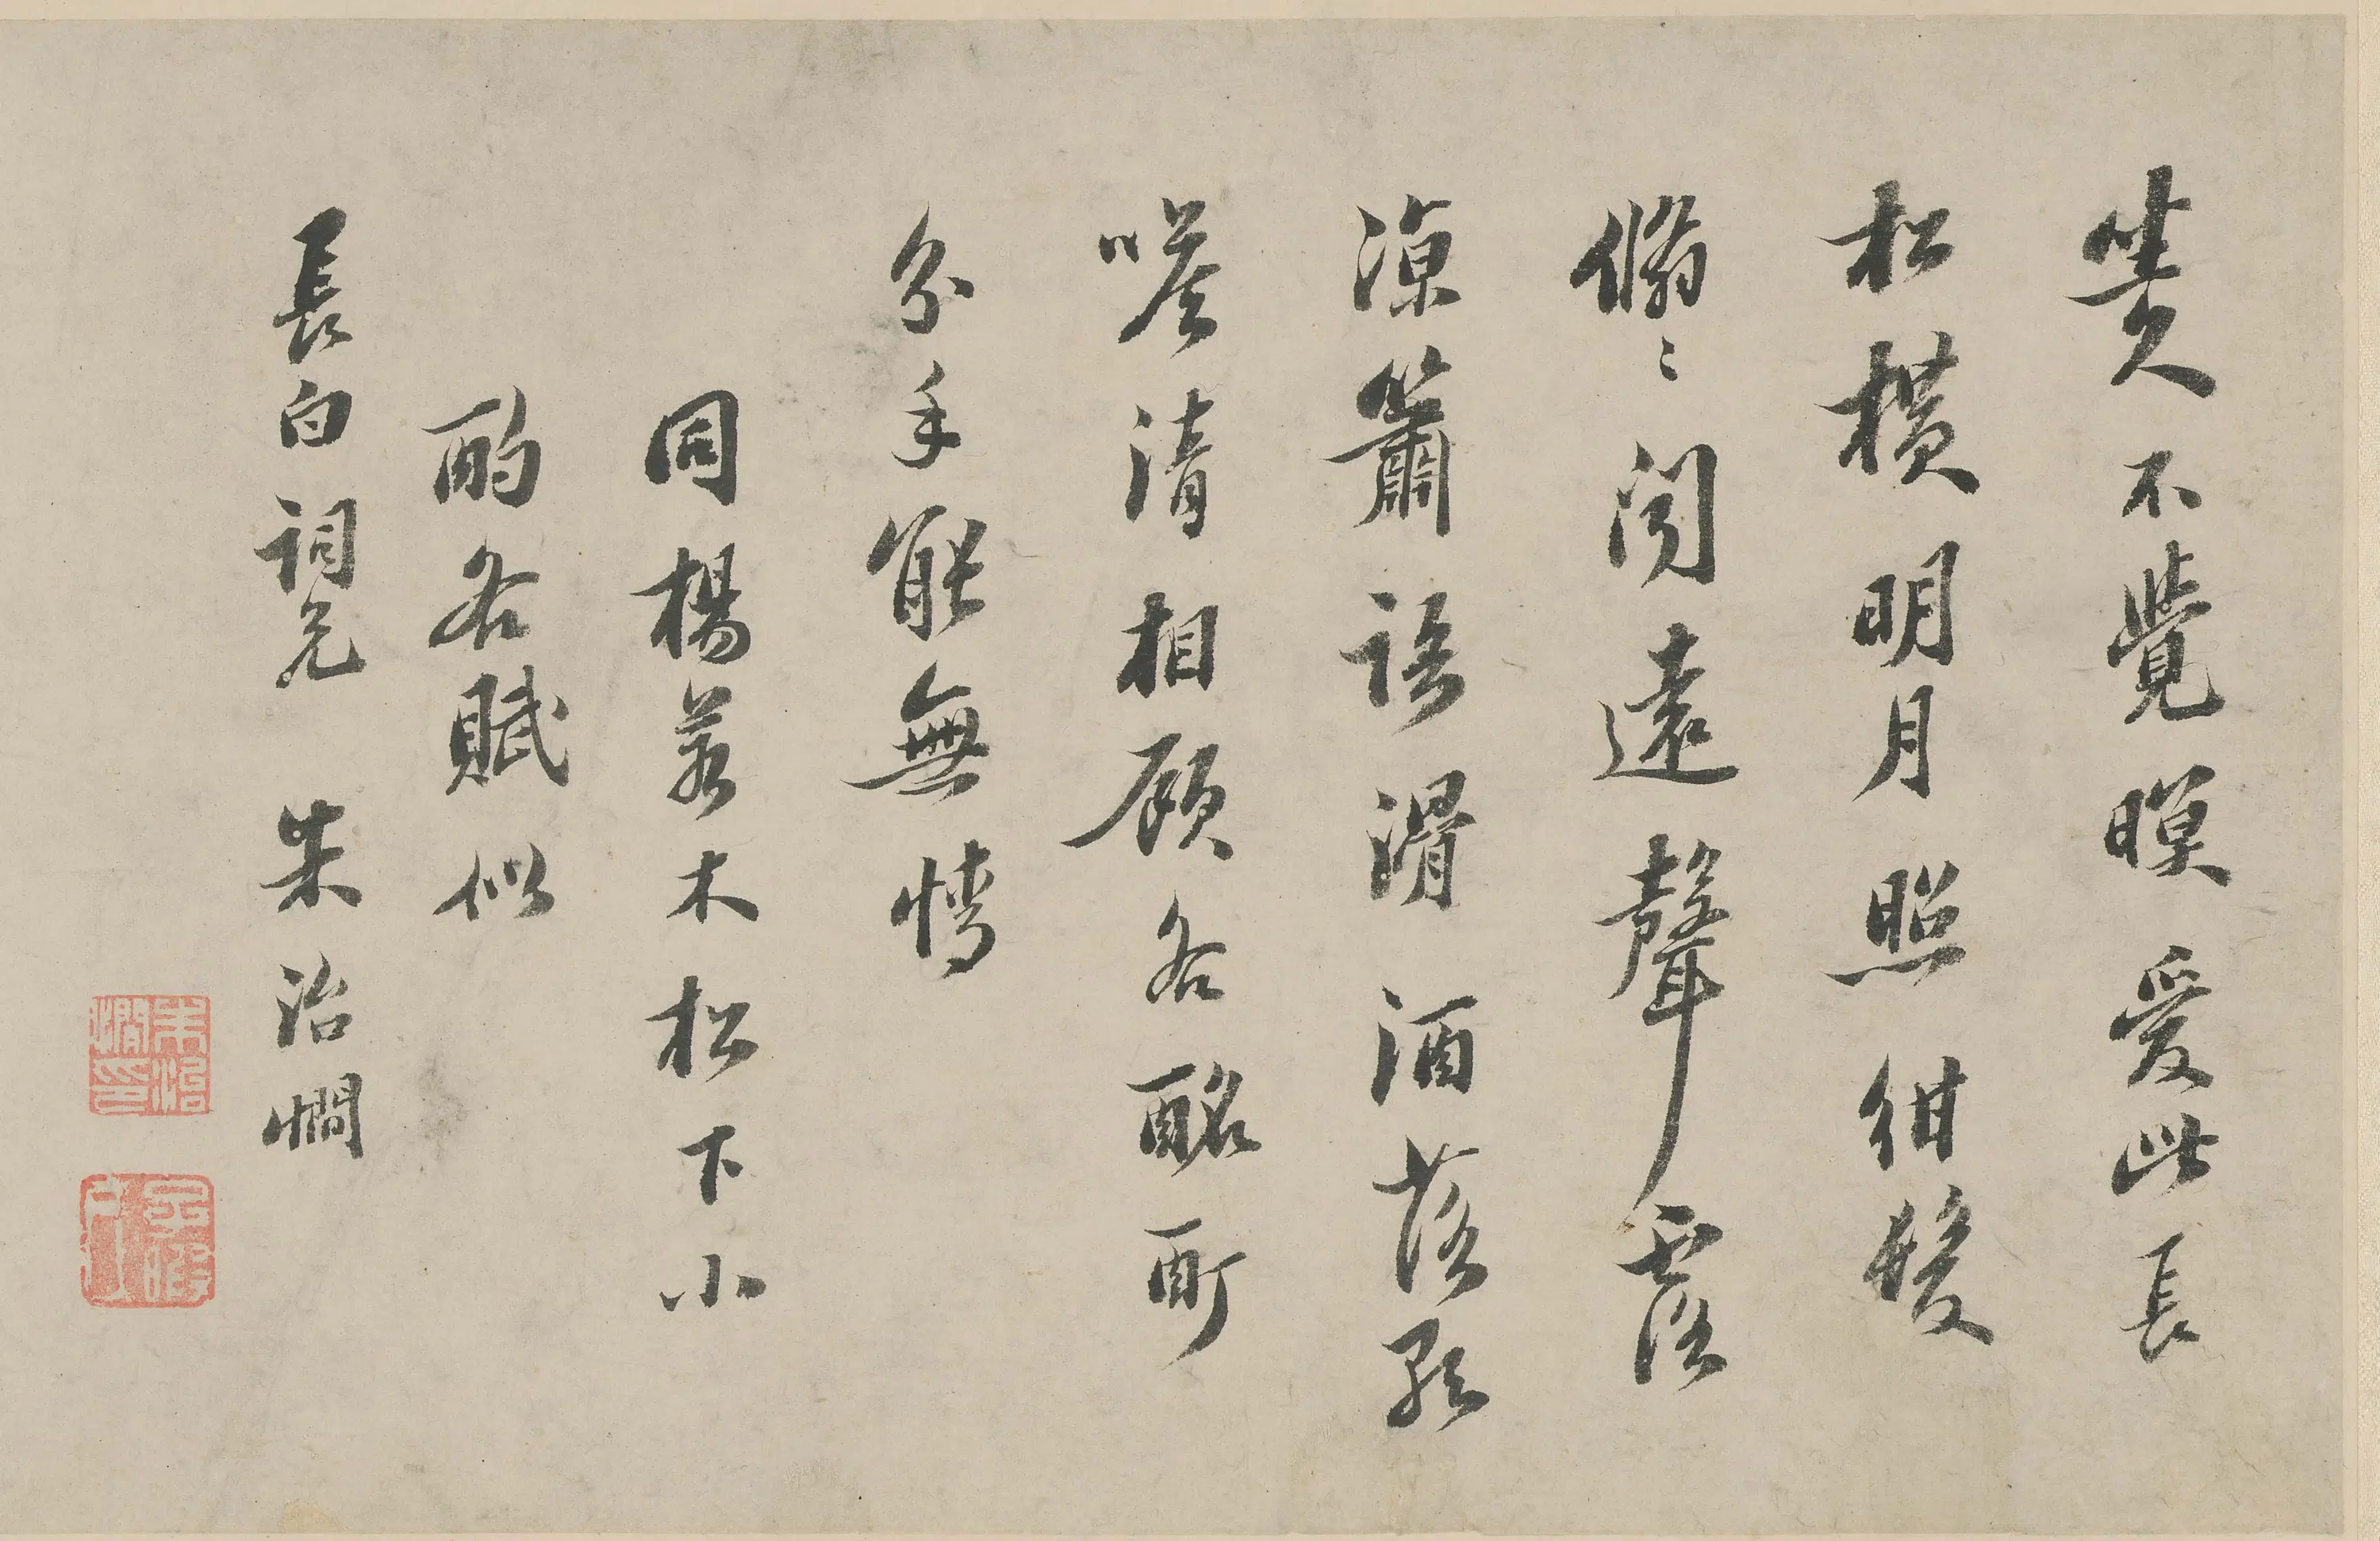 坐久不覺暝愛此長
松橫明月照紺髮
翛〻聞遠聲露
涼簫語滑酒落歌
喉清相顧各酩酊
分手能無情
同楊若木松下小
酌各賦似
長白詞兄 朱治憪
朱治憪印